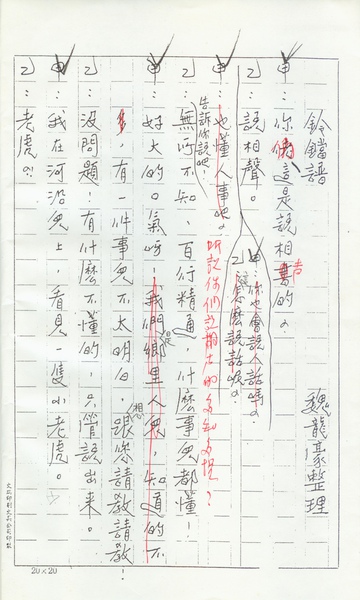 鈴鐺譜
魏龍濠整理
甲：你這是說相声的？
乙：說相聲。
甲：你也會說人話嗎？
乙：怎麼說話呢？
甲：也懂人事吧？
听說你們說相声的多知多懂？
告訴你說吧！
乙：無所不知，百行精通，什麼事兒都懂！
甲：好大的口氣呀！我們是鄉里人兒，知道的不
多，有一件事兒不太明白，想跟你請教請教！
乙：沒問題！有什麼不懂的，只管說出來。
甲：我在河沿兒上，看見一隻小老虎。
乙：老虎？
20×20